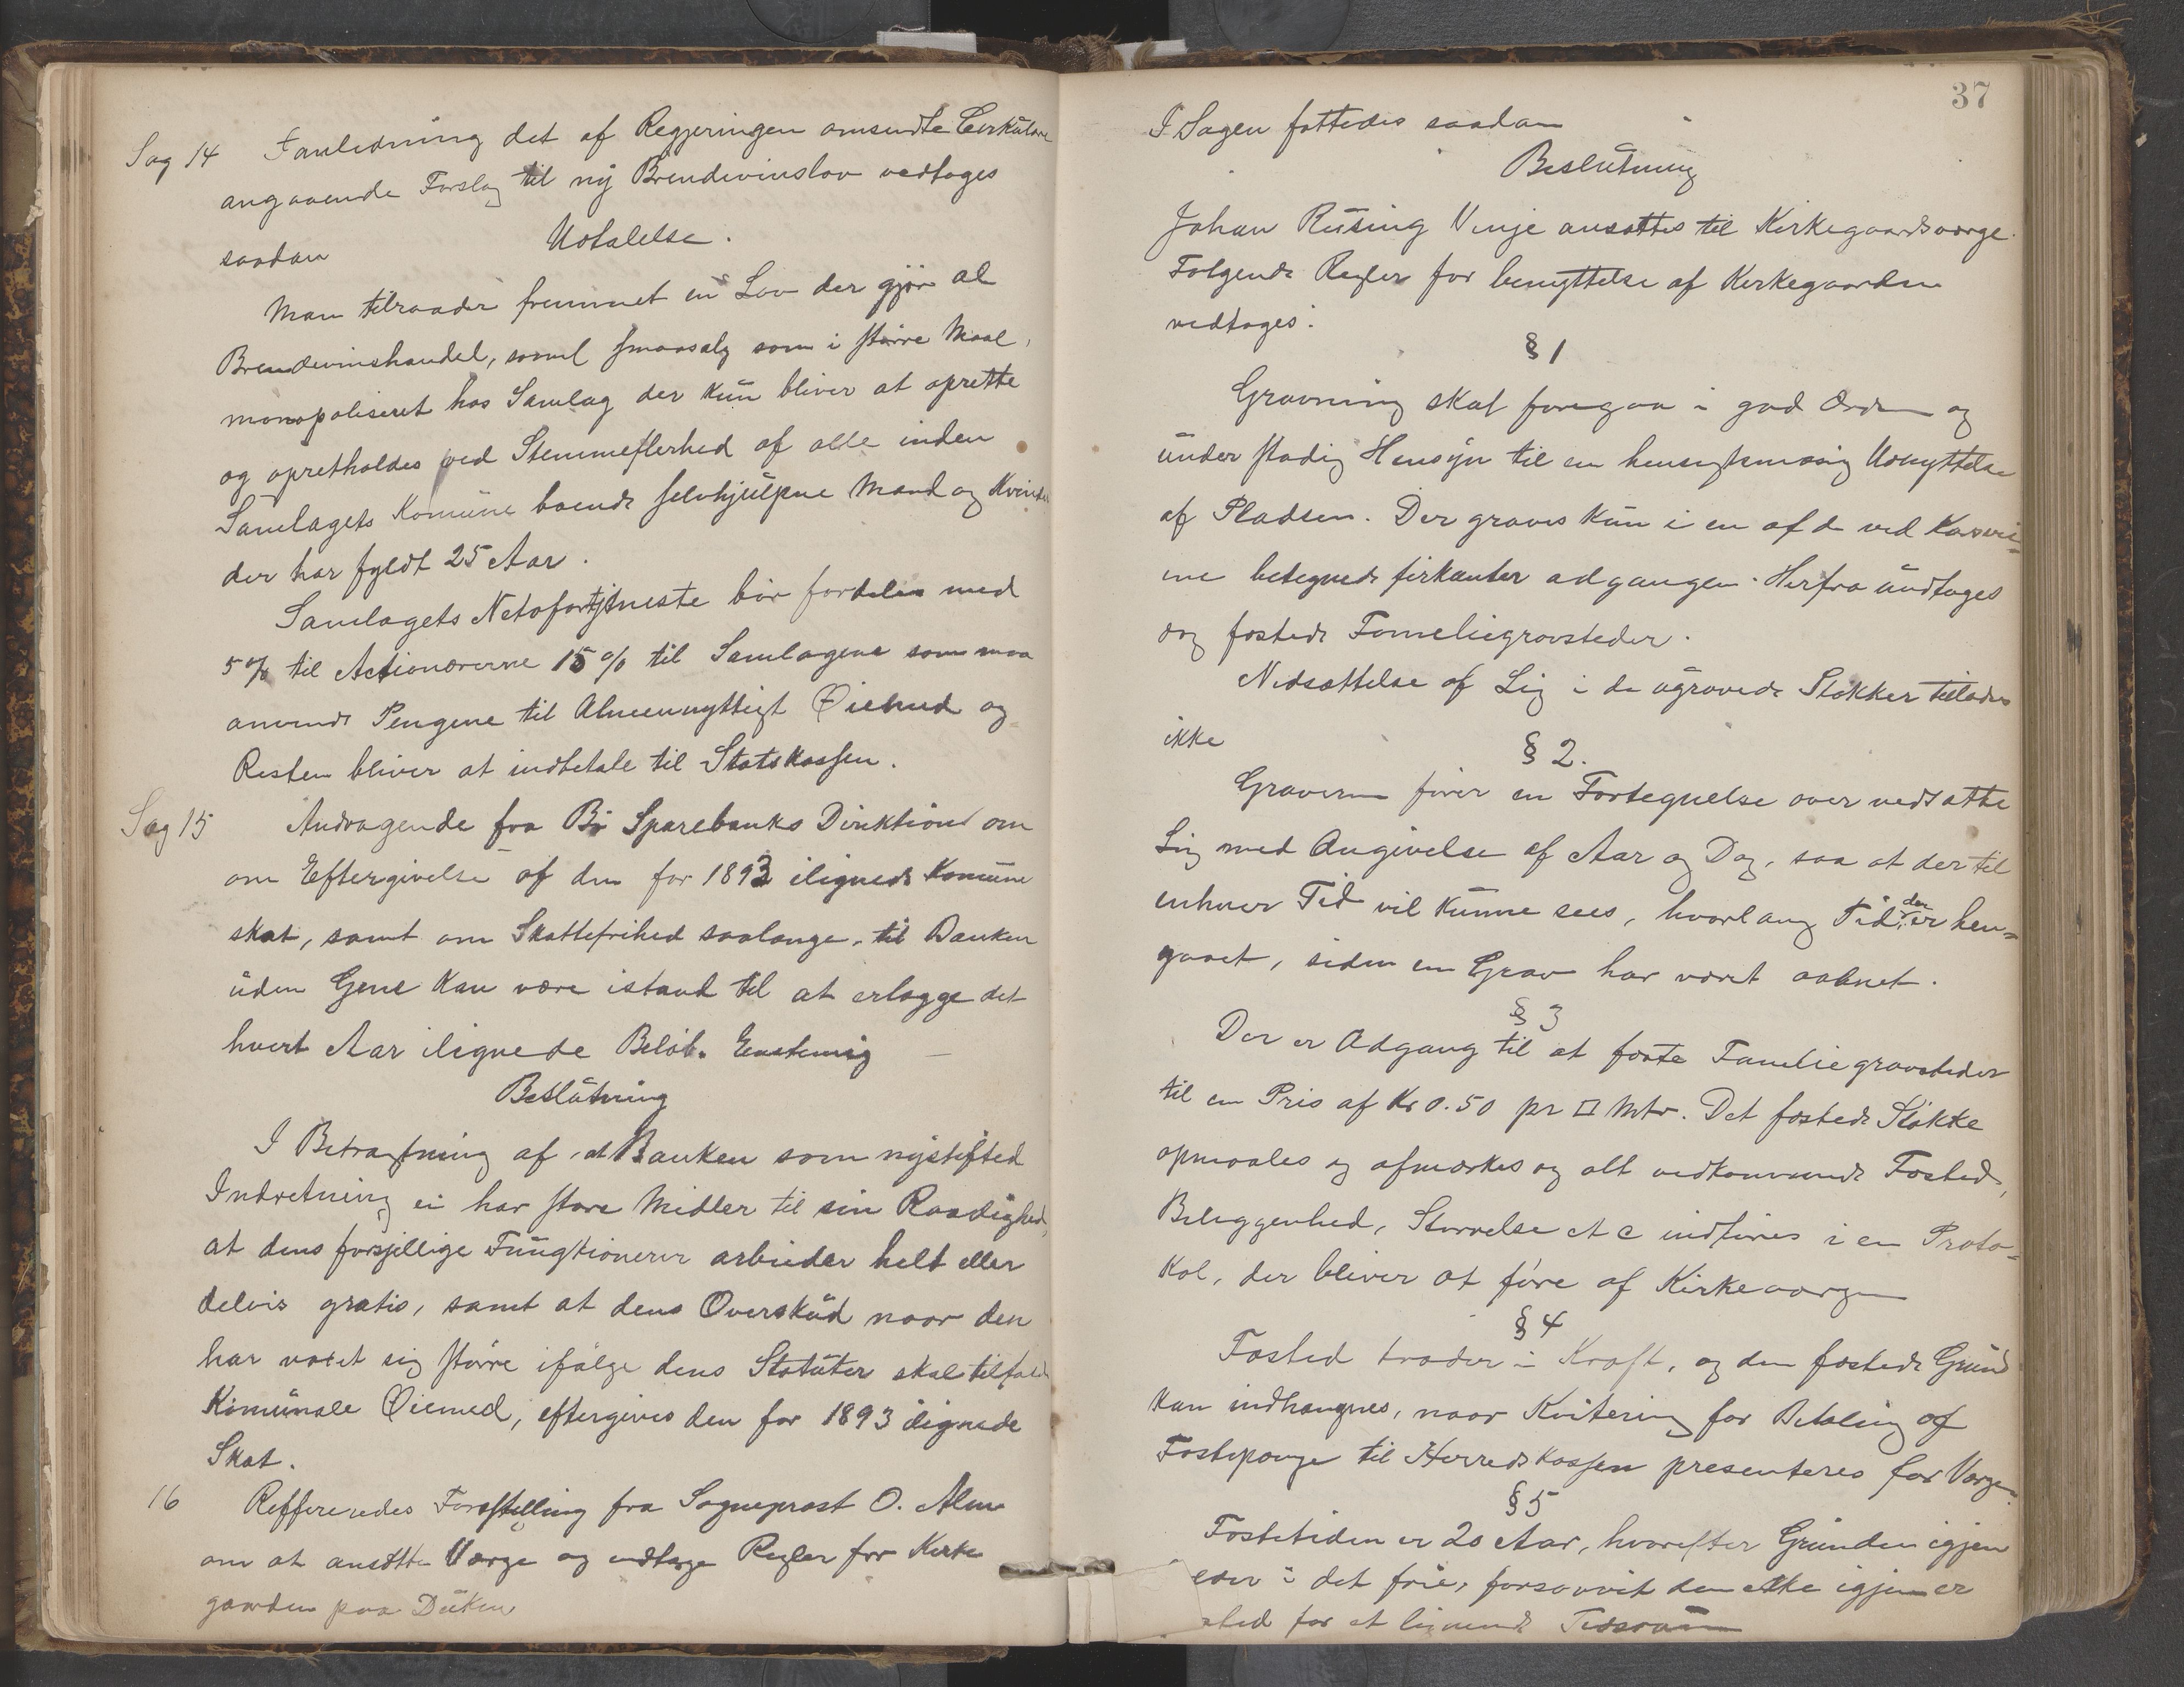 Sag 14 Ianledning det af Regjeringen omsendte Cirkulære
angaaende Forslag til ny Brendevinslov vedtoges
saadan Udtalelse.
Man tilraader fremmet en Lov der gjør al
Brendevinshandel, somel smaasalg som i större Maal,
monopoliseret hos Samlag der kun bliver at oprette
og opretholdes ved Stemmeflerhed af alle inden
Samlagets Komune boende selvhjulpne Mænd og Kvinder
der har fyldt 25 Aar.
Samlagets Netofortjeneste bör fordeles med
5% til Actionærerne 15% til Samlagene som maa
anvende Pengene til Almennyttigt Øiemed og
Resten bliver at indbetale til Statskassen.
Sag 15 Andragende fra Bö Sparebanks Direktion om
om Eftergivelse af den for 1893 ilignede Komune
skat, samt om Skattefrihed saalænge, til Banken
uden Gene kan være istand til at erlægge det
hvert Aar ilignede Belöb. Enstemig
Beslutning
I Betragtning af, at Banken som nystifted
Indretning ei har store Midler til sin Raadighed,
at dens forsjellige Fungtionerer arbeider helt eller
delvis gratis, samt at dens Overskud naar den
har voxet sig större ifølge dens Statuter skal tilfalde
Komunale Øiemed, eftergives den for 1893 ilignede
Skat.
16 Reffereredes Forestilling fra Sogneprest O. Alm
om at ansætte Værge og vedtage Regler for Kirke
gaarden paa
37
I Sagen fattedes saadan
Beslutning
Johan Rusing Vinje ansættes til Kirkegaardsværge.
Følgende Regler for benyttelse af Kirkegaarden
vedtoges:
§ 1
Gravning skal foregaa i god Orden og
under stadig Hensyn til en hensigtsmæsig Udnyttelse
af Pladsen. Der graves kun i en af de ved
ne betegnede firkanter adgangen. Herfra undtages
dog fæstede Fameliegravsteder.
Nedsættelse af Lig i de ugravede Stökker tillades
ikke
§ 2.
Graveren förer en Fortegnelse over nedsatte
Lig med Angivelse af Aar og Dag, saa at der til
enhver Tid vil kunne sees, hvorlang Tid der er hen=
gaaet, siden en Grav har været aabnet.
§ 3
Der er Adgang til at fæste Familiegravsteder
til en Pris af Kr 0.50 pr □ Mtr. Det fæstede Stökke
opmaales og afmærkes og alt vedkommende Fæsted,
Beliggenhed, Störrelse etc indföres i en Proto=
kol, der bliver at före af Kirkeværgen
§ 4
Fæsted træder i Kraft, og den fæstede Grund
kan indhægnes, naar Kvitering for Betaling af
Fæstepenge til Herredskassen presenteres for Værgen.
§ 5
Fæstetiden er 20 Aar, hvorefter Grunden igjen
er i det frie, forsaavit den ikke igjen er
sted for et lignende Tidsrum